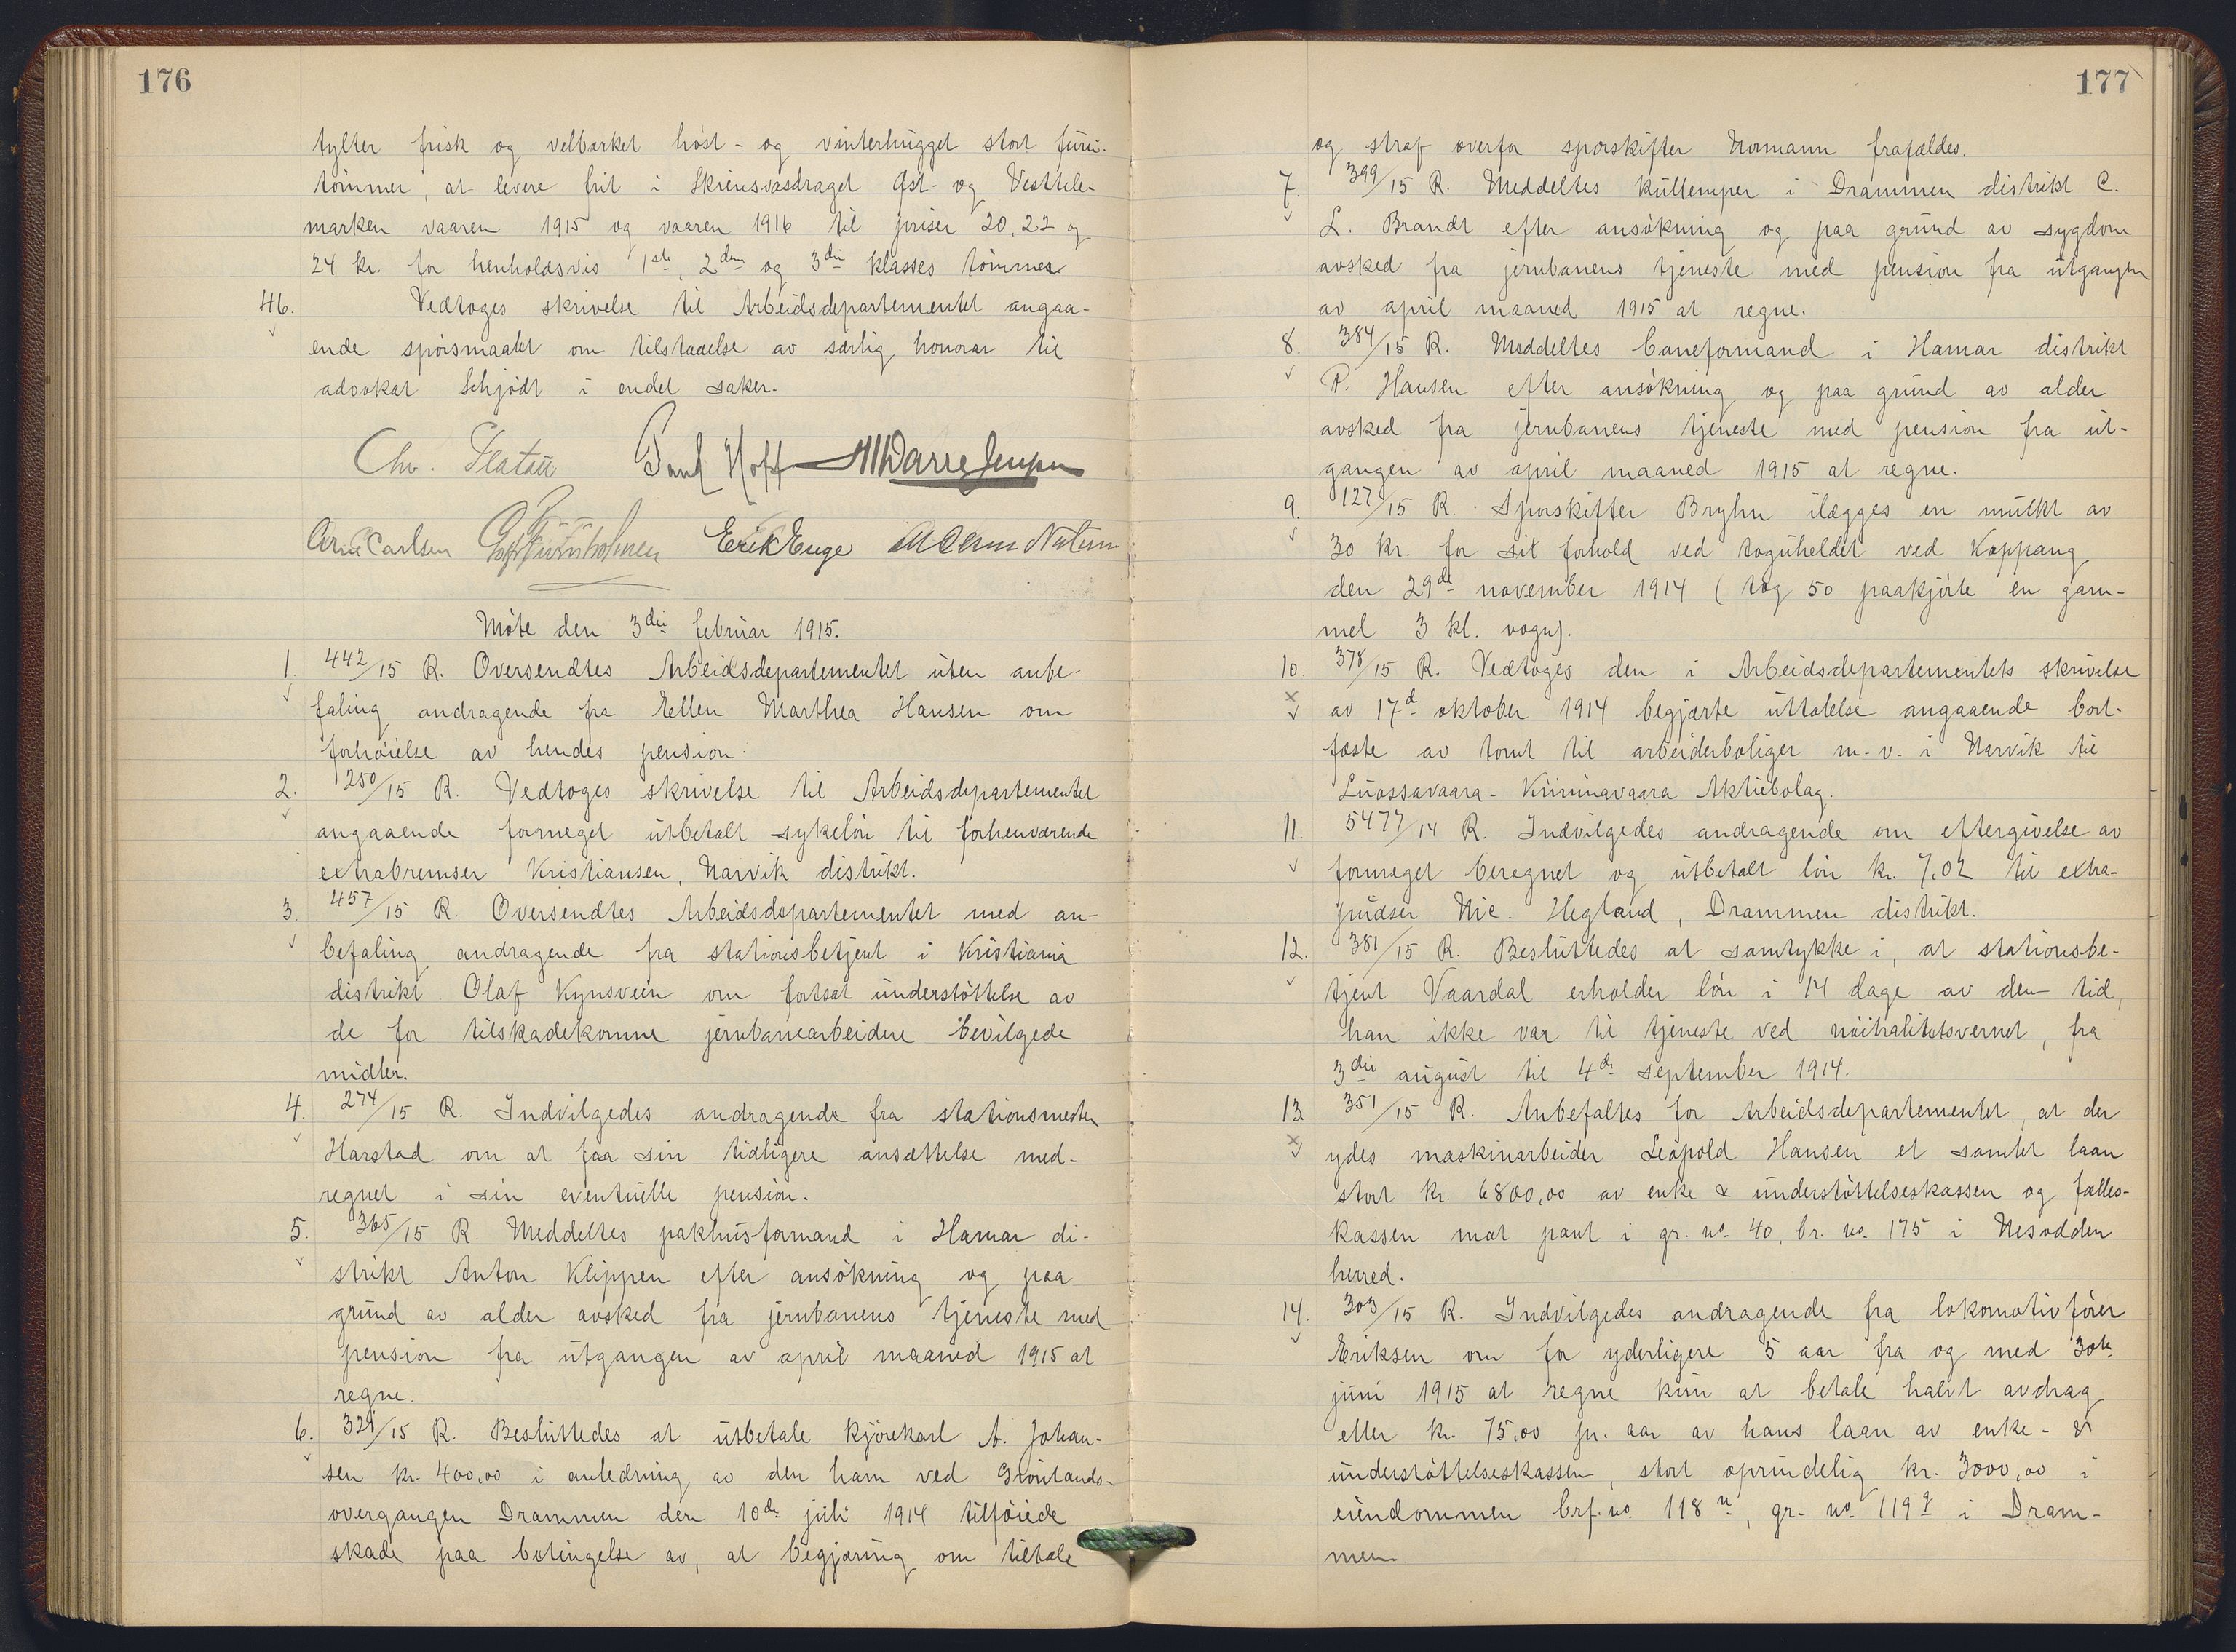 176
tylter frisk og velbarket høst- og vinterhugget stort furu-
tømmer, at levere frit i Skiensvasdraget Øst- og Vesttele-
marken vaaren 1915 og vaaren 1916 til priser 20, 22 og
24 kr. for henholdsvis 1ste, 2den og 3die klasses tømmer.
46. Vedtoges skrivelse til Arbeidsdepartementet angaa-
ende spørsmaalet om tilstaaelse av særlig honorar til
advokat Schjødt i endel saker.
Chr. Platou Paul Hoff Darre Jenssen
Arne Carlsen Erik Enge
Møte den 3die februar 1915.
1. 442/15 R. Oversendtes Arbeidsdepartementet uten anbe-
faling andragende fra Ellen Marthea Hansen om
forhøielse av hendes pension.
2. 250/15 R. Vedtoges skrivelse til Arbeidsdepartementet
angaaende formeget utbetalt sykeløn til forhenværende
extrabremser Kristiansen, Narvik distrikt.
3. 457/15 R. Oversendtes Arbeidsdepartementet med an-
befaling andragende fra stationsbetjent i Kristiania
distrikt Olaf Kynsveen om fortsat understøttelse av
de for tilskadekomne jernbanearbeidere bevilgede
midler.
4. 274/15 R. Indvilgedes andragende fra stationsmester
Harstad om at faa sin tidligere ansættelse med-
regnet i sin eventuelle pension.
5. 365/15 R. Meddeltes pakhusformand i Hamar di-
strikt Anton Klippen efter ansøkning og paa
grund av alder avsked fra jernbanens tjeneste med
pension fra utgangen av april maaned 1915 at
regne.
6. 321/15 R. Besluttedes at utbetale kjørekarl A. Johan-
sen kr. 400,00 i anledning av den ham ved Grønlands-
overgangen Drammen den 10de juli 1914 tilføiede
skade paa betingelse av, at begjæring om tiltale
177
og straf overfor sporskifter Normann frafaldes.
7. 399/15 R. Meddeltes kullemper i Drammen distrikt C.
L. Brandt efter ansøkning og paa grund av sygdom
avsked fra jernbanens tjeneste med pension fra utgangen
av april maaned 1915 at regne.
8. 384/15 R. Meddeltes baneformand i Hamar distrikt
P. Hansen efter ansøkning og paa grund av alder
avsked fra jernbanens tjeneste med pension fra ut-
gangen av april maaned 1915 at regne.
9. 127/15 R. Sporskifter Bryhn ilægges en mulkt av
30 kr. for sit forhold ved toguheldet ved Koppang
den 29de november 1914 (tog 50 paakjørte en gam-
mel 3 kl. vogn).
10. 378/15 R. Vedtoges den i Arbeidsdepartementets skrivelse
av 17de oktober 1914 begjærte uttalelse angaaende bort-
fæste av tomt til arbeiderboliger m.v. i Narvik til
Luossavaara-Kiirunavaara Aktiebolag.
11. 5477/14 R. Indvilgedes andragende om eftergivelse av
formeget beregnet og utbetalt løn kr. 7,02 til extra-
pudser Nic. Hegland, Drammen distrikt.
12. 381/15 R. Besluttedes at samtykke i, at stationsbe-
tjent Vaardal erholder løn i 14 dage av den tid,
han ikke var til tjeneste ved nøitralitetsvernet, fra
3die august til 4de september 1914.
13. 351/15 R. Anbefaltes for Arbeidsdepartementet, at der
ydes maskinarbeider Leopold Hansen et samlet laan
stort kr. 6800,00 av enke & understøttelseskassen og fælles-
kassen mot pant i gr. no. 40, br. no. 175 i Nesodden
herred.
14. 303/15 R. Indvilgedes andragende fra lokomotivfører
Eriksen om for yderligere 5 aar fra og med 30te
juni 1915 at regne kun at betale halvt avdrag
eller kr. 75,00 pr. aar av hans laan av enke- &
understøttelseskassen, stort oprindelig kr. 3000,00 i
eiendommen brf. no. 118, gr. no. 119 i Dram-
men